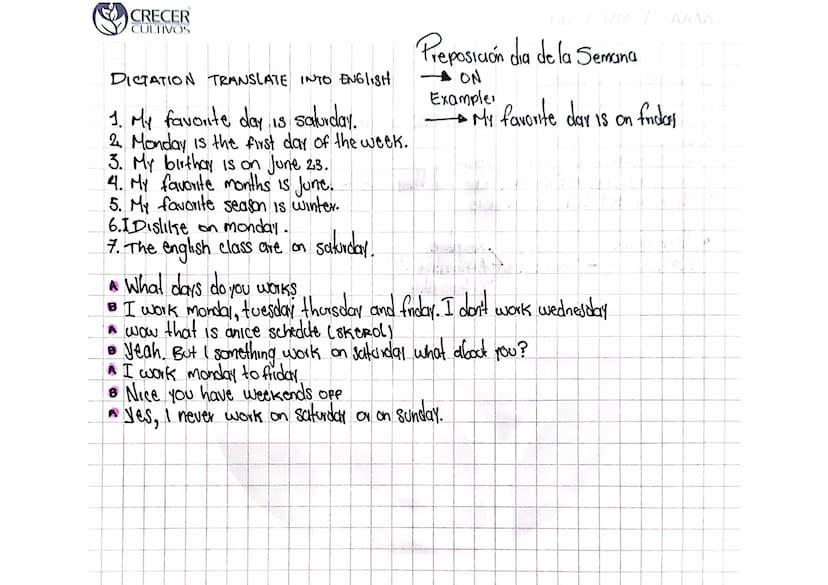 CRECER
CULTIVOS
Preposición dia de la Semana
→ ON
Example:
→ My favorite day is on friday
DICTATION TRANSLATE INTO ENGLISH
1. My favorite day is saturday.
2. Monday is the first day of the week.
3. My birthay is on June 23.
4. My favorite months is June.
5. My favorite season is winter.
6. I Dislike on monday.
7. The english class are on saturday.
A What days do you works
B I work monday, tuesday thursday and friday. I don't work wednesday
A wow that is a nice schedcle (skerol)
B Yeah. But I something work on saturday what about you?
A I work monday to friday
B Nice you have weekends off
A Yes, I never work on saturday or on sunday.